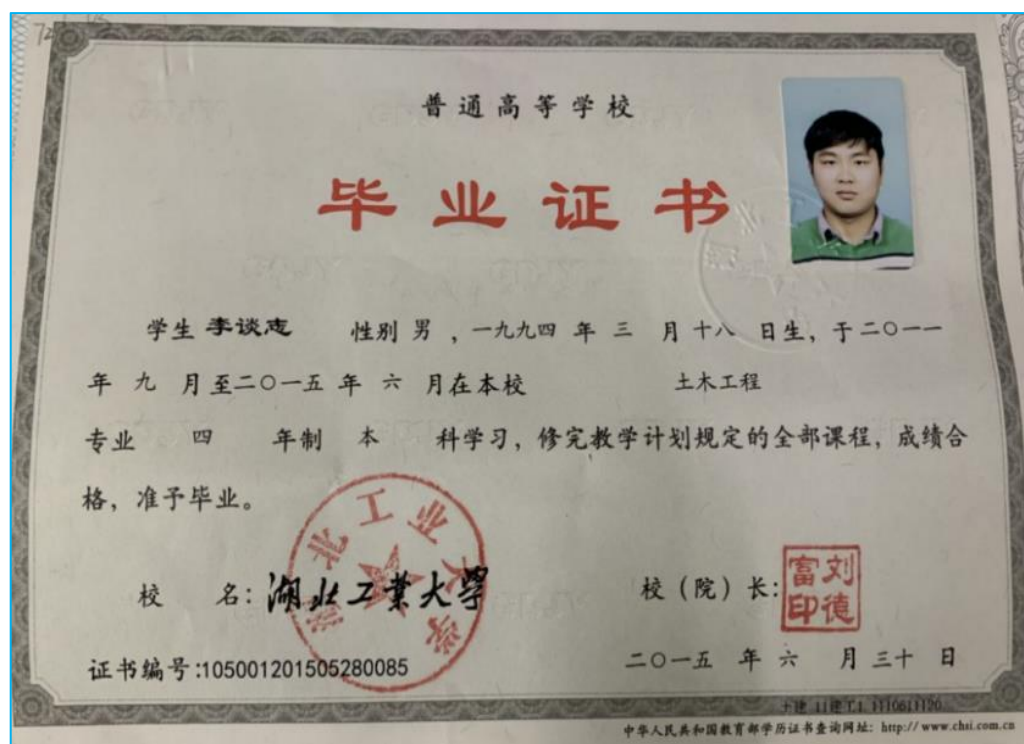 普通高等学校
毕业证书
学生 李谈志 性别 男 ,一九九四 年 三 月 十八 日生,于二〇一一
年 九 月至二〇一五 年 六 月在本校 土木工程
专业 四 年制 本 科学习,修完教学计划规定的全部课程,成绩合
格,准予毕业。
湖北工业大学
校 名:湖北工業大學 校(院)长: 刘德富印
证书编号:105001201505280085 二〇一五 年 六 月 三十 日
中华人民共和国教育部学历证书查询网址: http://www.chsi.com.cn